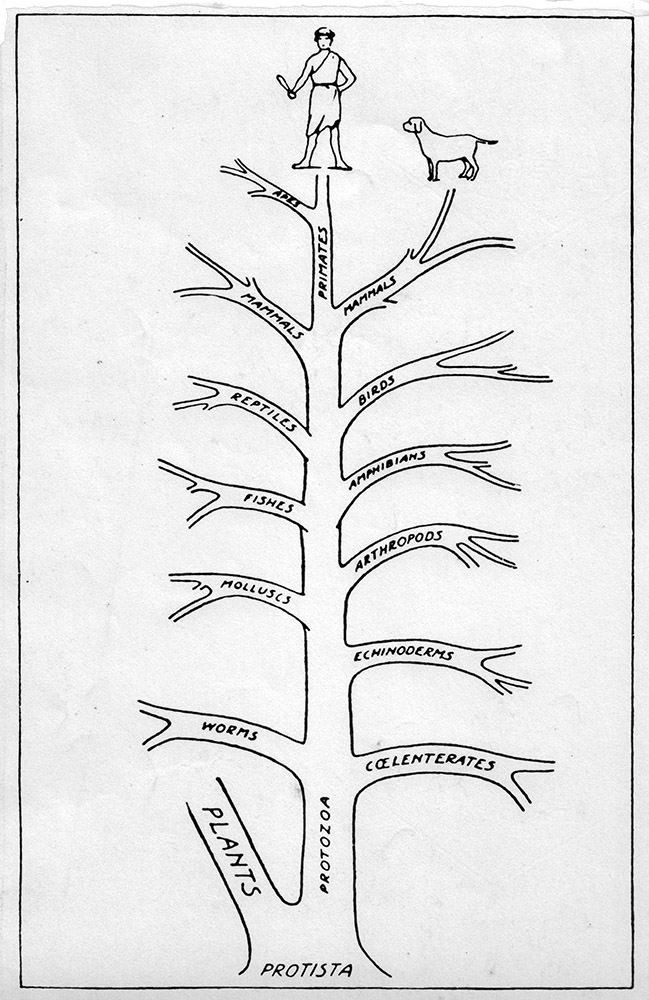 APES
PRIMATES
MAMMALS
MAMMALS
BIRDS
REPTILES
AMPHIBIANS
FISHES
ARTHROPODS
MOLLUSCS
ECHINODERMS
WORMS
CŒLENTERATES
PLANTS
PROTOZOA
PROTISTA